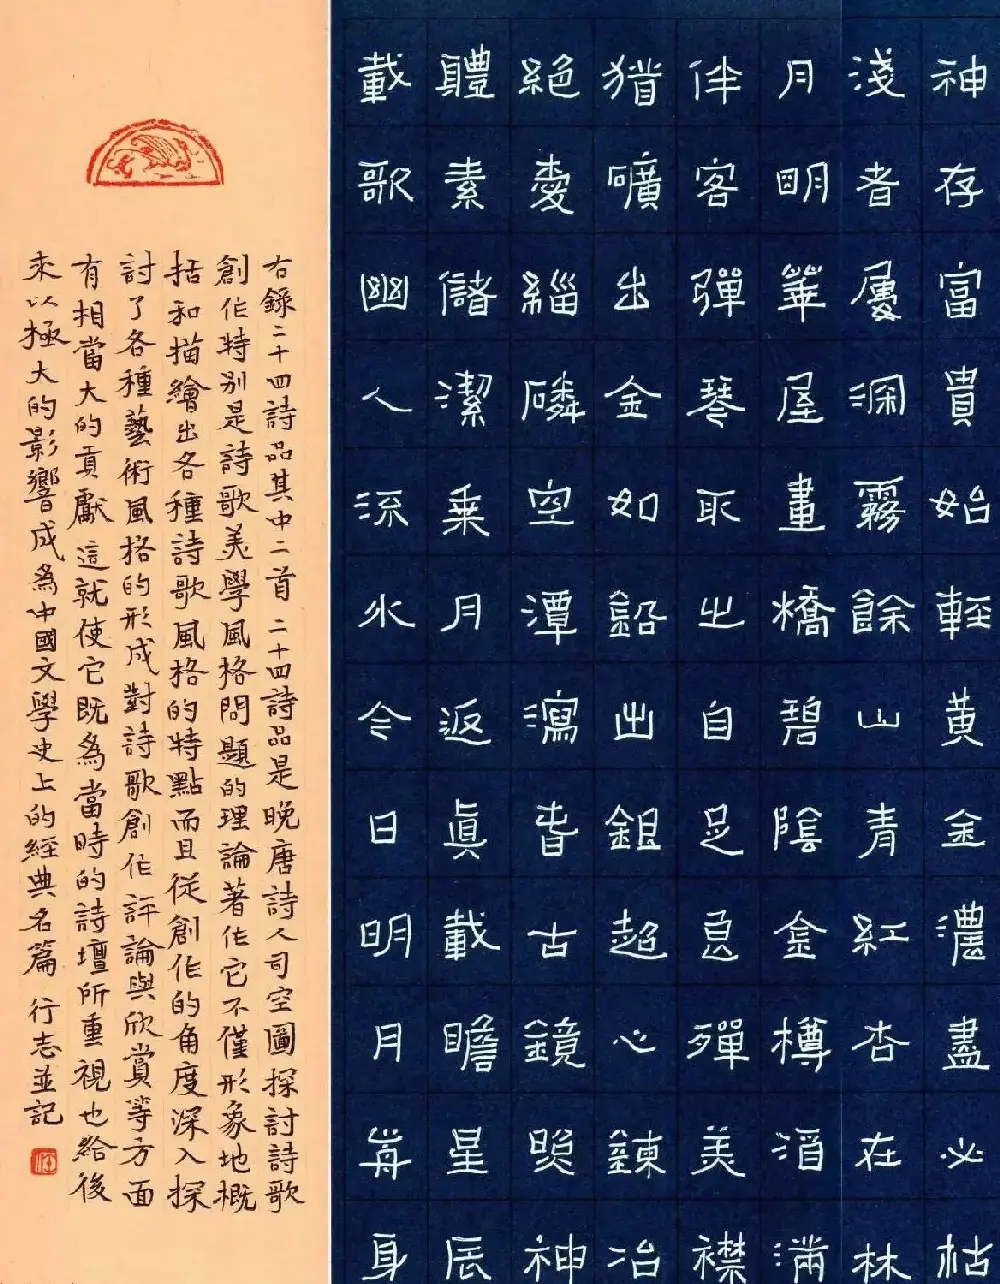 神存富貴始輕黃金濃盡必枯
淺者屢深霧餘山青紅杏在林
月明華屋畫橋碧陰金樽酒滿
伴客彈琴取之自足良殫美襟
猶礦出金如鉛出銀超心冶
絕愛緇磷空潭瀉春古鏡照神
體素儲潔乘月返真載瞻星辰
載歌幽人流水今日明月前身
右錄二十四詩品其中二首二十四詩品是晚唐詩人司空圖探討詩歌
創作特別是詩歌美學風格問題的理論著作它不僅形象地概
括和描繪出各種詩歌風格的特點而且從創作的角度深入探
討了各種藝術風格的形成對詩歌創作評論與欣賞等方面
有相當大的貢獻這就使它既為當時的詩壇所重視也給後
來以極大的影響成為中國文學史上的經典名篇行志並記